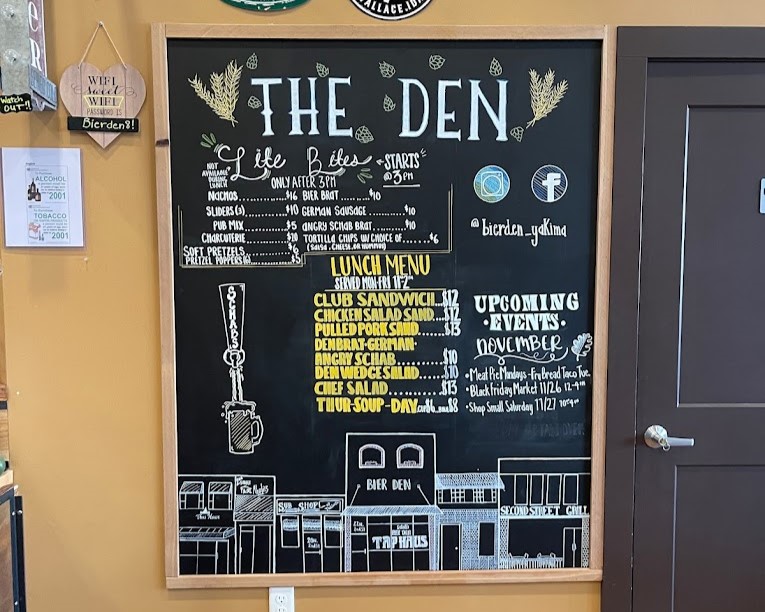 WALLACE, ID.
Watch
OUT!!
WIFI
sweet
WIFI
PASSWORD IS
Bierden8!
ALCOHOL
2001
TOBACCO
2001
THE DEN
Lite Bites
STARTS
@ 3PM
NOT
AVAILABLE
DURING
LUNCH
ONLY AFTER 3PM
NACHOS.....$16
SLIDERS(3).....$10
PUB MIX.....$5
CHARCUTERIE.....$10
SOFT PRETZELS.....$6
PRETZEL POPPERS(6).....$5
BIER BRAT.....$10
GERMAN SAUSAGE.....$10
ANGRY SCHAB BRAT.....$10
TORTILLA CHIPS W/ CHOICE OF.....$6
(SALSA, CHEESE, OR HUMMUS)
@bierden_yakima
LUNCH MENU
SERVED MON-FRI 11-2PM
CLUB SANDWICH...$12
CHICKEN SALAD SAND...$12
PULLED PORK SAND...$13
DENBRAT-GERMAN-
ANGRY SCHAB.....$10
DEN WEDGE SALAD.....$10
CHEF SALAD.....$13
THUR-SOUP-DAY
$8
UPCOMING
•EVENTS•
NOVEMBER
•Meat Pie Mondays - Fry Bread Taco Tue.
•Black Friday Market 11/26
•Shop Small Saturday 11/27
SCHAB'S
SUB SHOP
BIER DEN
TAPHAUS
SECOND STREET GRILL